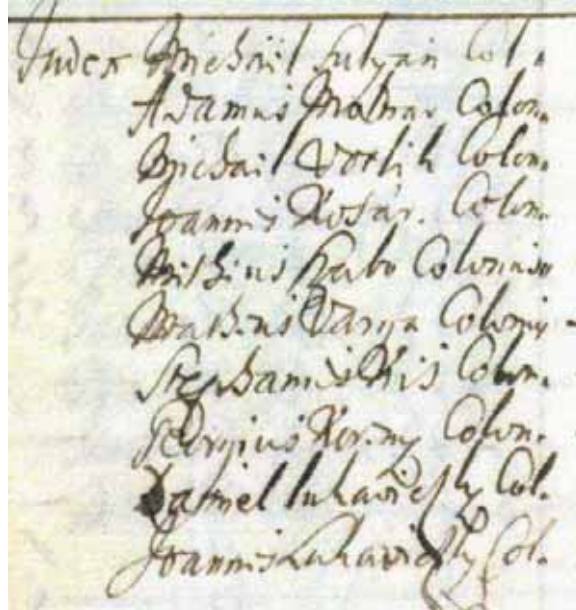 Judex Michail Sulyan Col.
Adamus Molnar Colon.
Michail Vozlik Colon.
Joannis Kosár. Colon.
Mathius Szabo Colonus
Mathius Varga Colonus
Stephanus Kis Colon.
Georgius Kormy Colon.
Daniel Lukavicsky Col.
Joannis Lukavicsky Col.